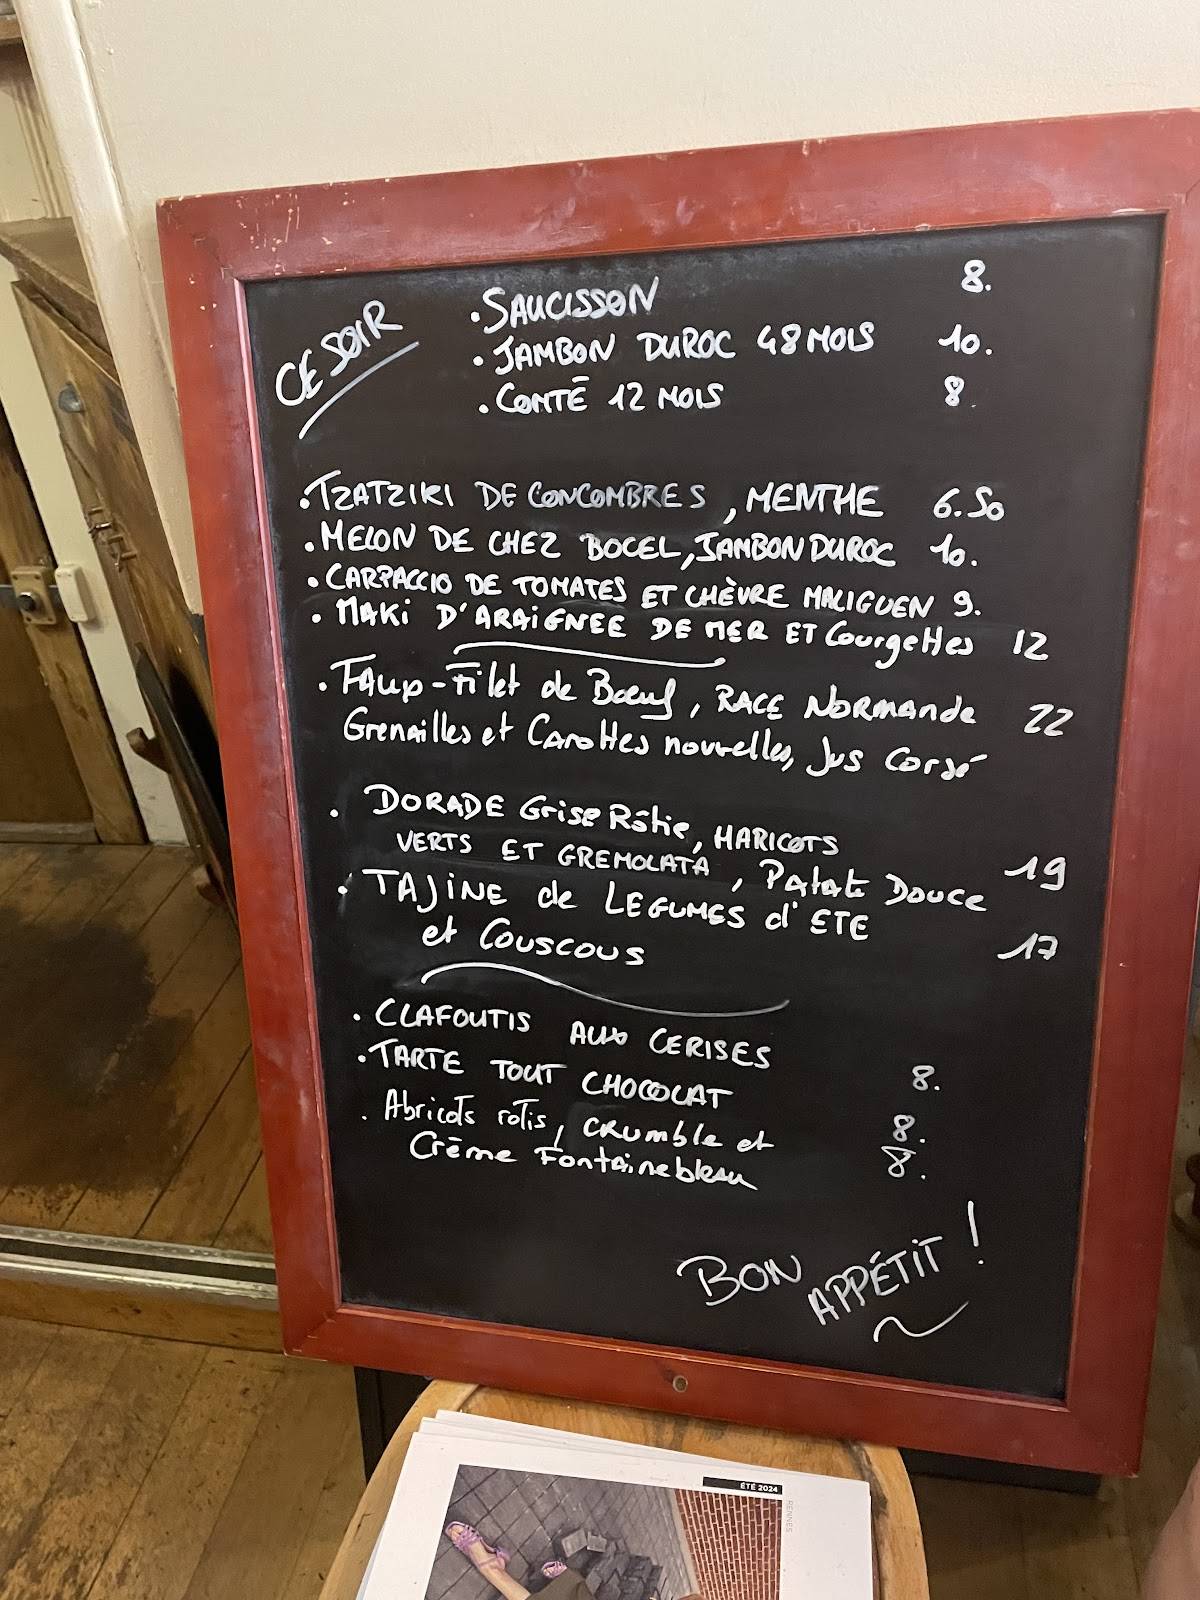 CE SOIR
. SAUCISSON 8.
. JAMBON DUROC 48 MOIS 10.
. COMTÉ 12 MOIS 8.
. TZATZIKI DE CONCOMBRES, MENTHE 6.50
. MELON DE CHEZ BOCEL, JAMBON DUROC 10.
. CARPACCIO DE TOMATES ET CHÈVRE MALIGUEN 9.
. MAKI D'ARAIGNEE DE MER ET Courgettes 12
. FAUX-Filet de Bœuf, RACE Normande 22
Grenailles et Carottes nouvelles, Jus Corsé
. DORADE Grise Rôtie, HARICOTS
VERTS ET GREMOLATA, Patate Douce 19
. TAJINE de LEGUMES d'ETE
et Couscous 17
. CLAFOUTIS AUX CERISES 8.
. TARTE TOUT CHOCOLAT 8.
. Abricots rotis, crumble et
Crème Fontainebleau 8.
BON APPÉTIT !
ÉTÉ 2024
RENNES